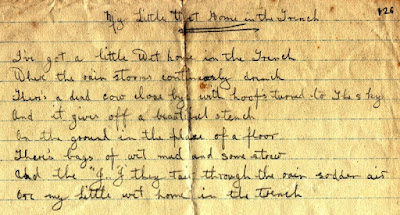 126
My Little Wet Home in the Trench
I've got a little Wet home in the Trench
Where the rain storms continuously drench
There's a dead cow close by with hoofs turned to the sky
And it gives off a beautiful stench
On the ground in the place of a floor
There's bags of wet mud and some straw
And the "J.J they tear through the rain sodden air
O'er my little wet home in the trench